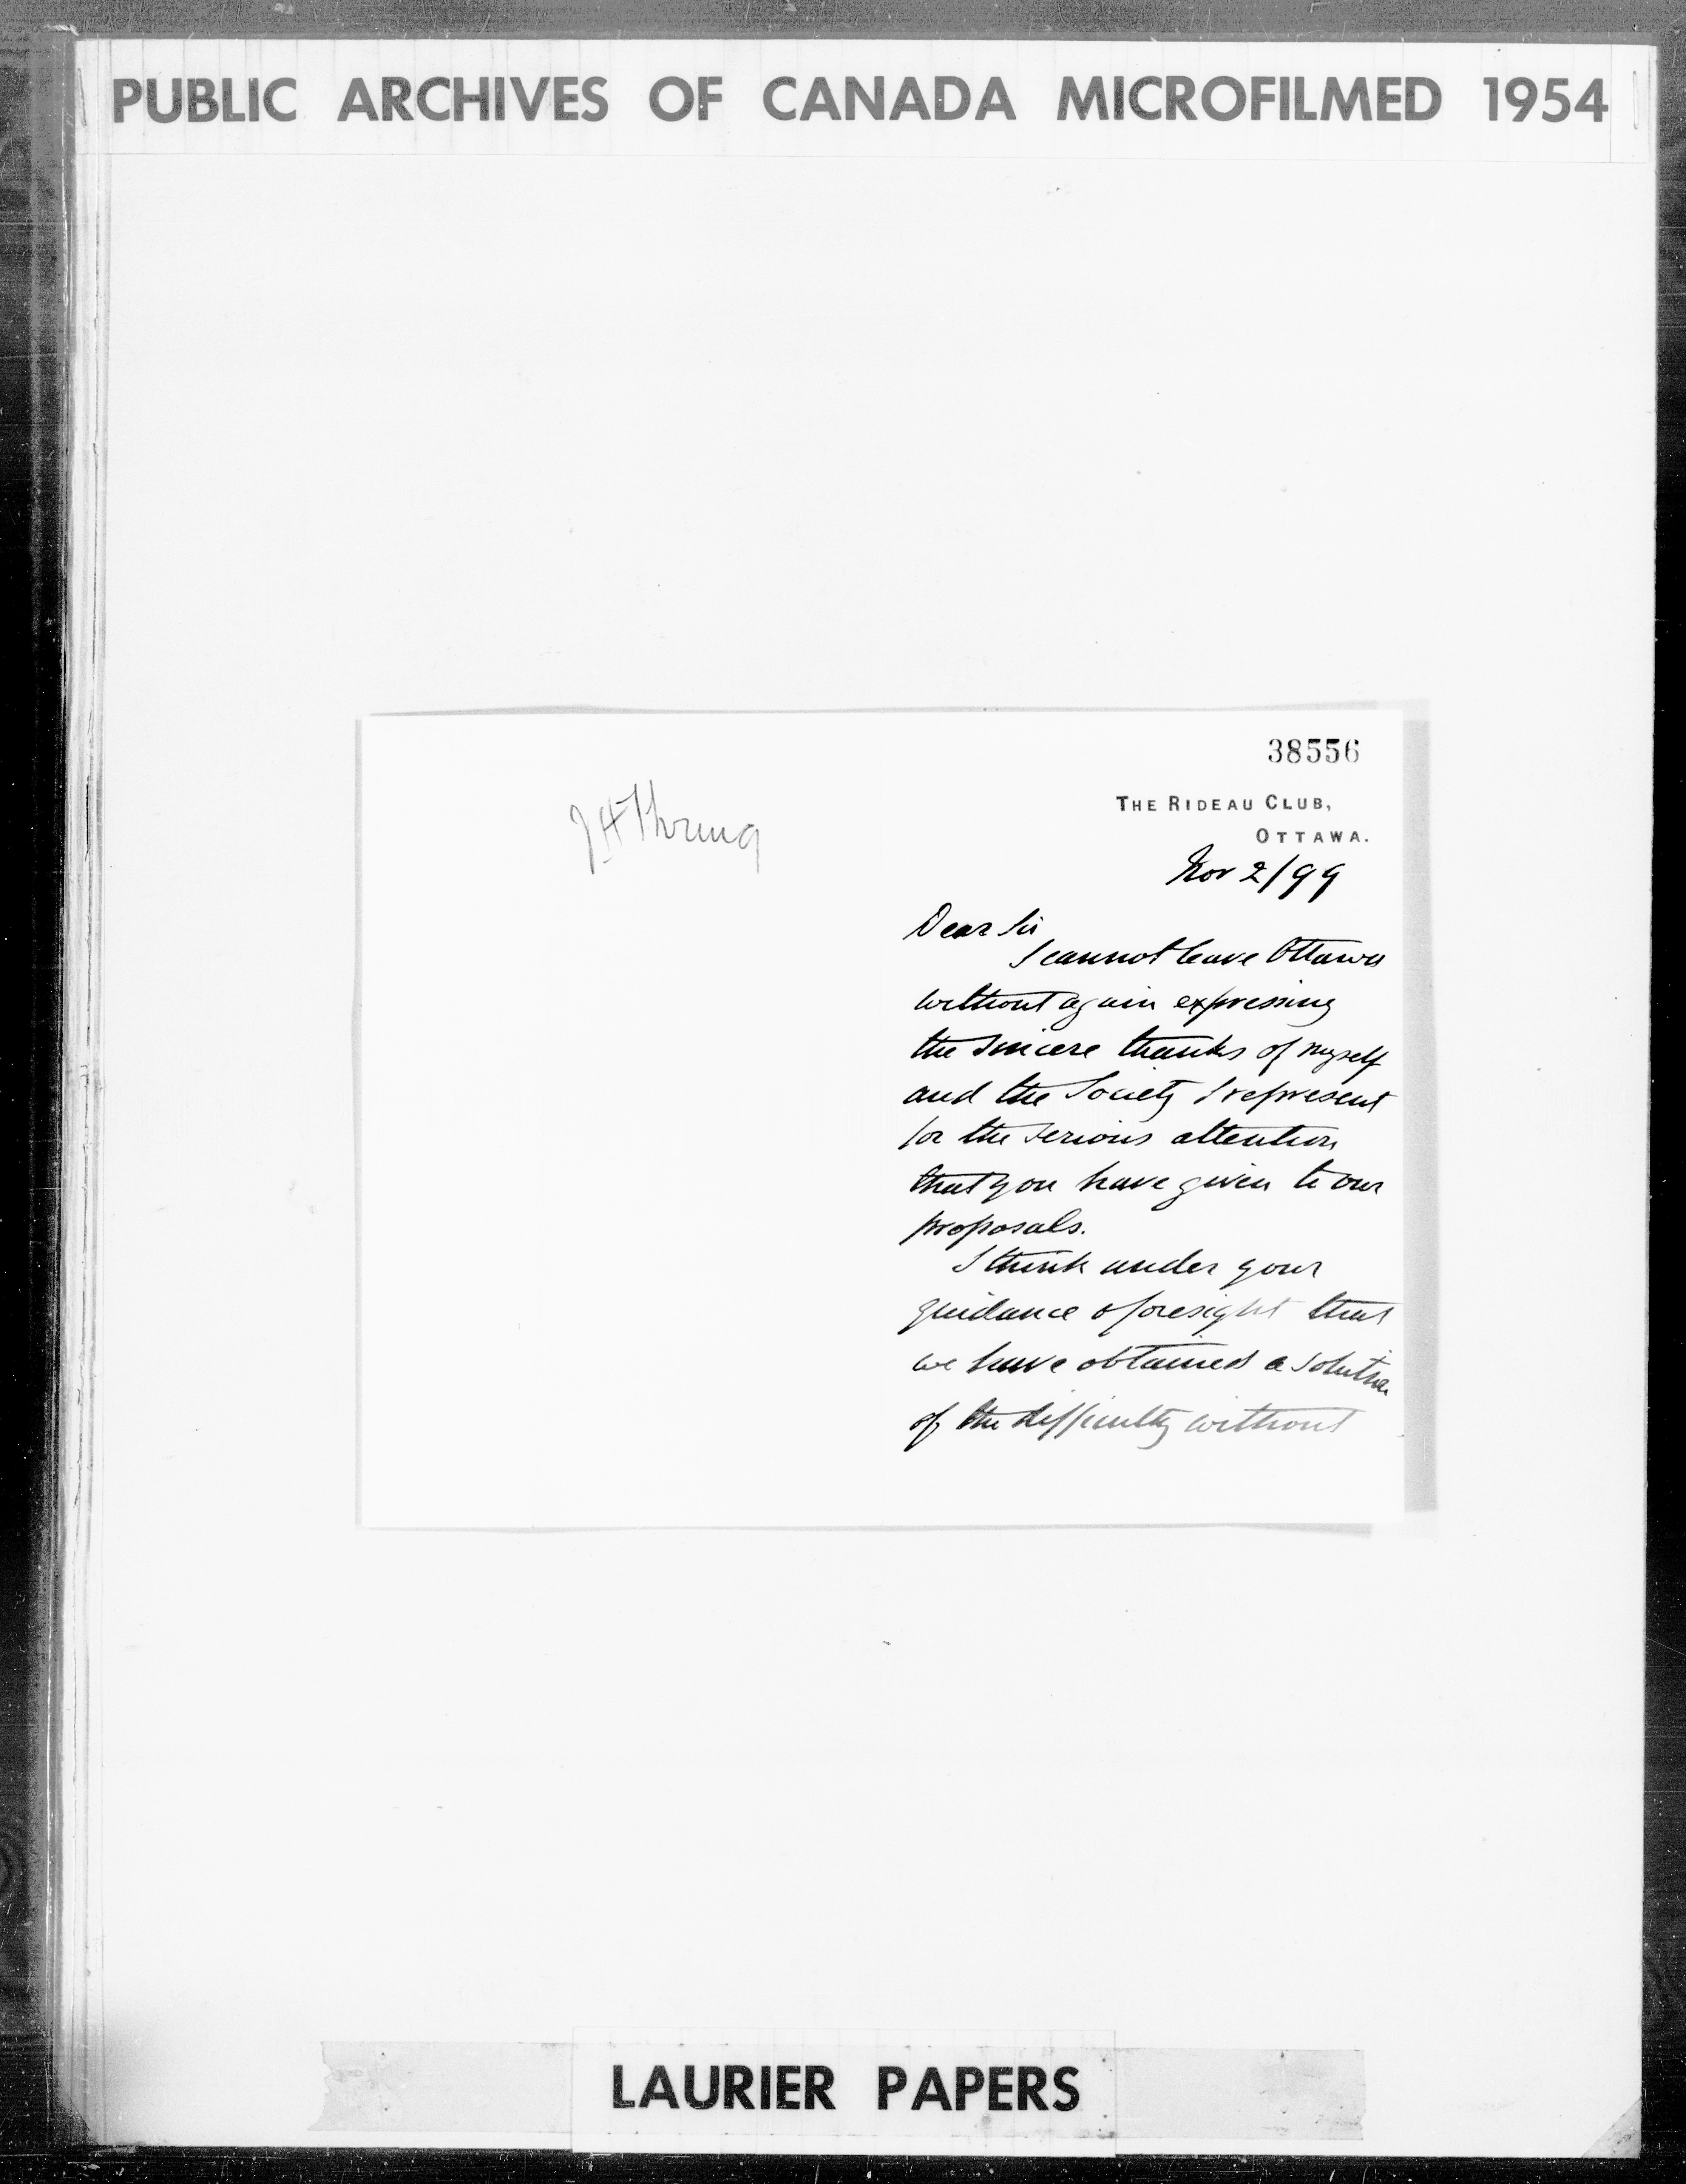 PUBLIC ARCHIVES OF CANADA MICROFILMED 1954
38556
J H Thring
THE RIDEAU CLUB,
OTTAWA.
Nov 2/99
Dear Sir
I cannot leave Ottawa
without again expressing
the sincere thanks of myself
and the Society I represent
for the serious attention
that you have given to our
proposals.
I think under your
guidance & foresight that
we have obtained a solution
of the difficulty without
LAURIER PAPERS